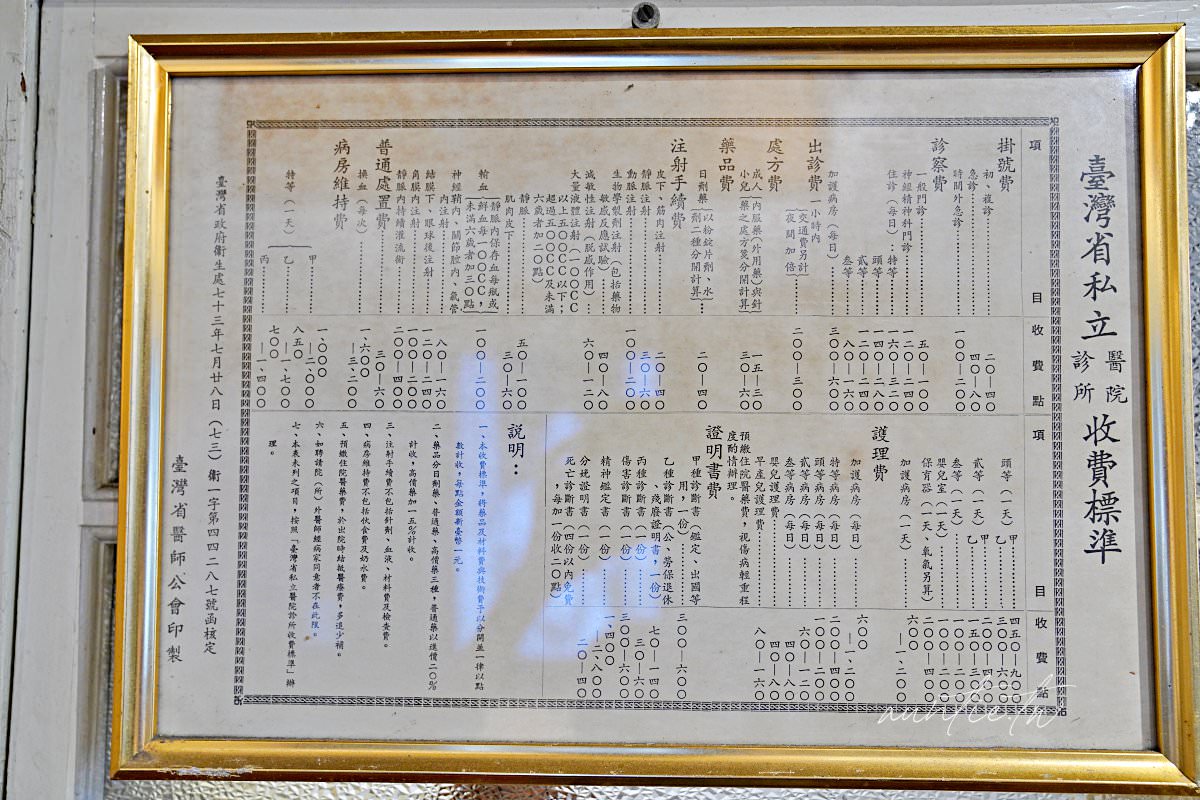 臺灣省私立醫院診所收費標準
項目
收費點
掛號費
初、複診
二〇—四〇
急診
四〇—八〇
時間外急診
一〇〇—二〇〇
診察費
一般門診
五〇—一〇〇
神經精神科門診
一二〇—二四〇
住診（每日）：特等
一六〇—三二〇
頭等
一四〇—二八〇
貳等
一二〇—二四〇
叁等
八〇—一六〇
加護病房（每日）
三〇〇—六〇〇
出診費
一小時內
交通費另計
夜間加倍
二〇〇—三〇〇
處方費
成人（內服藥（外用藥）與針
小兒（藥之處方箋分開計算
一五—三〇
三〇—六〇
藥品費
日劑藥
以粉錠片劑、水
劑二種分開計算
二〇—四〇
注射手續費
皮下、筋肉注射
二〇—四〇
靜脈注射
三〇—六〇
動脈注射
一〇〇—二〇〇
生物學製劑注射（包括藥物
敏感反應試驗）
四〇—八〇
減敏性注射（脫感作用）
六〇—一二〇
大量液體注射（一〇〇〇CC
以上五〇〇CC以下；
超過五〇〇CC及未滿
六歲者加二〇點）
靜脈
五〇—一〇〇
肌肉皮下
三〇—六〇
輸血
靜脈內保存血每瓶或
鮮血每一〇〇CC，
未滿六歲者加三〇點
一〇〇—二〇〇
神經鞘內、關節腔內、氣管
內注射
八〇—一六〇
結膜下、眼球後注射
一二〇—二四〇
角膜內注射
一〇〇—二〇〇
靜脈內持續灌流術
二〇〇—四〇〇
普通處置費
三〇—六〇
換血（每次）
一、六〇〇
—三、二〇〇
病房維持費
特等（一天）
甲
一、〇〇〇
—二、〇〇〇
乙
八五〇
—一、七〇〇
丙
七〇〇
—一、四〇〇
項目
收費點
頭等（一天）
甲
四五〇—九〇〇
乙
三〇〇—六〇〇
貳等（一天）
甲
二〇〇—四〇〇
乙
一五〇—三〇〇
叁等（一天）
嬰兒室（一天）
保育器（一天、氧氣另算）
二〇〇—四〇〇
加護病房（一天）
六〇〇
—一、二〇〇
護理費
加護病房（每日）
六〇〇
—一、二〇〇
特等病房（每日）
二〇〇—四〇〇
頭等病房（每日）
一〇〇—二〇〇
貳等病房（每日）
六〇—一二〇
叁等病房（每日）
四〇—八〇
嬰兒護理費
四〇—八〇
早產兒護理費
八〇—一六〇
預繳住院醫藥費，視傷病輕重程
度酌情辦理。
證明書費
甲種診斷書（鑑定、出國等
用，一份）
三〇〇—六〇〇
乙種診斷書（公、勞保退休
、殘廢證明書，一份）
七〇—一四〇
丙種診斷書（一份）
三〇—六〇
傷害診斷書（一份）
三〇〇—六〇〇
精神鑑定書（一份）
一、四〇〇
—二、八〇〇
分娩證明書（一份）
二〇—四〇
死亡診斷書（四份以內免費
，每加一份收二〇點）
說明：
一、本收費標準，將藥品及材料費與技術費予以分開並一律以點
數計收，每點金額新臺幣一元。
二、藥品分日劑藥、普通藥、高價藥三種，普通藥以進價二〇%
計收，高價藥加一五%計收。
三、注射手續費不包括針劑、血液、材料費及檢查費。
四、病房維持費不包括伙食費及奶水費。
五、預繳住院醫藥費，於出院時結抵醫療費，多退少補。
六、如聘請院（所）外醫師經病家同意者不在此限。
七、本表未列之項目，按照「臺灣省私立醫院診所收費標準」辦
理。
臺灣省政府衛生處七十三年七月廿八日（七三）衛一字第四四二八七號函核定
臺灣省醫師公會印製